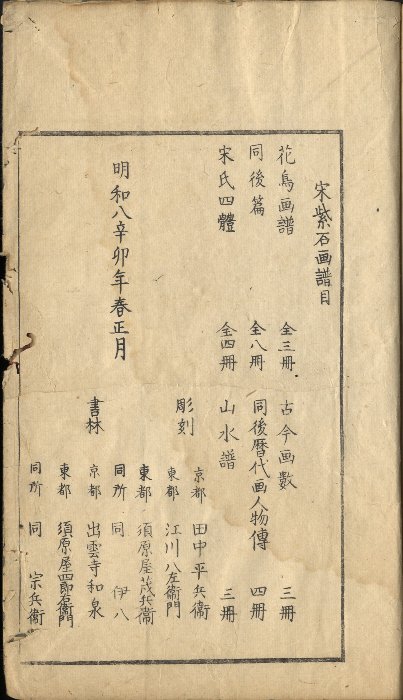 宋紫石画譜目
花鳥画譜 全三冊 古今画藪 三冊
同後篇 全八冊 同後暦代画人物傳 四冊
宋氏四體 全四冊 山水譜 三冊
明和八辛卯年春正月
彫刻
京都 田中平兵衞
東都 江川八左衞門
東都 須原屋茂兵衞
同所 同 伊八
書林
京都 出雲寺和泉
東都 須原屋四郎右衞門
同所 同 宗兵衞